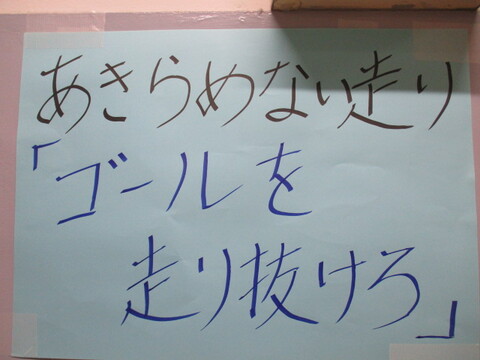 あきらめない走り
「ゴールを
走り抜けろ」